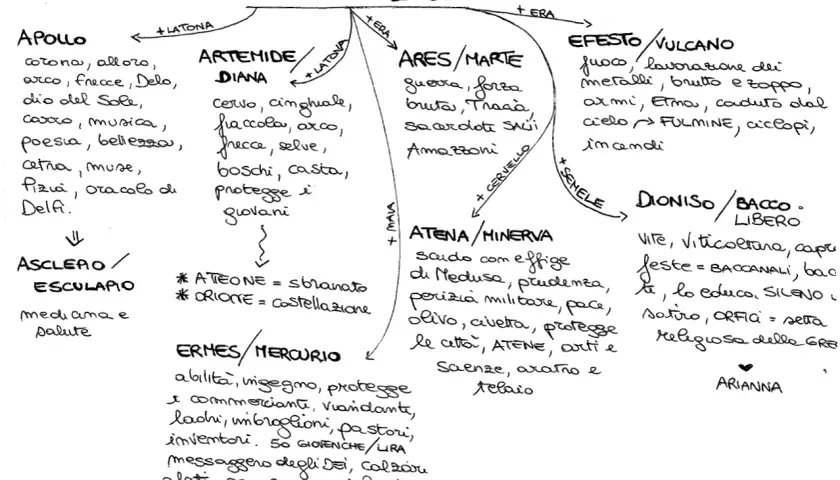 + LATONA
APOLLO
corona, alloro,
arco, frecce, Delo,
dio del Sole,
carro, musica,
poesia, bellezza,
cetra, muse,
Pizia, oracolo di
Delfi.
ASCLEPIO /
ESCULAPIO
medicina e
salute
+ LATONA
ARTEMIDE /
DIANA
cervo, cinghiale,
fiaccola, arco,
frecce, selve,
boschi, casta,
protegge i
giovani
* ATEONE = sbranato
* ORIONE = costellazione
+ ERA
ARES / MARTE
guerra, forza
bruta, Tracia,
sacerdoti SALII
Amazzoni
+ ERA
EFESTO / VULCANO
fuoco, lavorazione dei
metalli, brutto e zoppo,
armi, Etna, caduto dal
cielo → FULMINE, ciclopi,
incendi
+ CERVELLO
ATENA / MINERVA
scudo con effige
di Medusa, prudenza,
perizia militare, pace,
olivo, civetta, protegge
le città, ATENE, arti e
scienze, aratro e
telaio
+ SEMELE
DIONISO / BACCO -
LIBERO
vite, viticoltura, capr
feste = BACCANALI, bac
ti, lo educa SILENO
satiro, ORFICI = setta
religiosa della GRE
♥
ARIANNA
+ MAIA
ERMES / MERCURIO
abilità, ingegno, protegge
i commercianti, viandanti,
ladri, imbroglioni, pastori,
inventori. 50 GIOVENCHE / LIRA
messaggero degli Dei, calzari